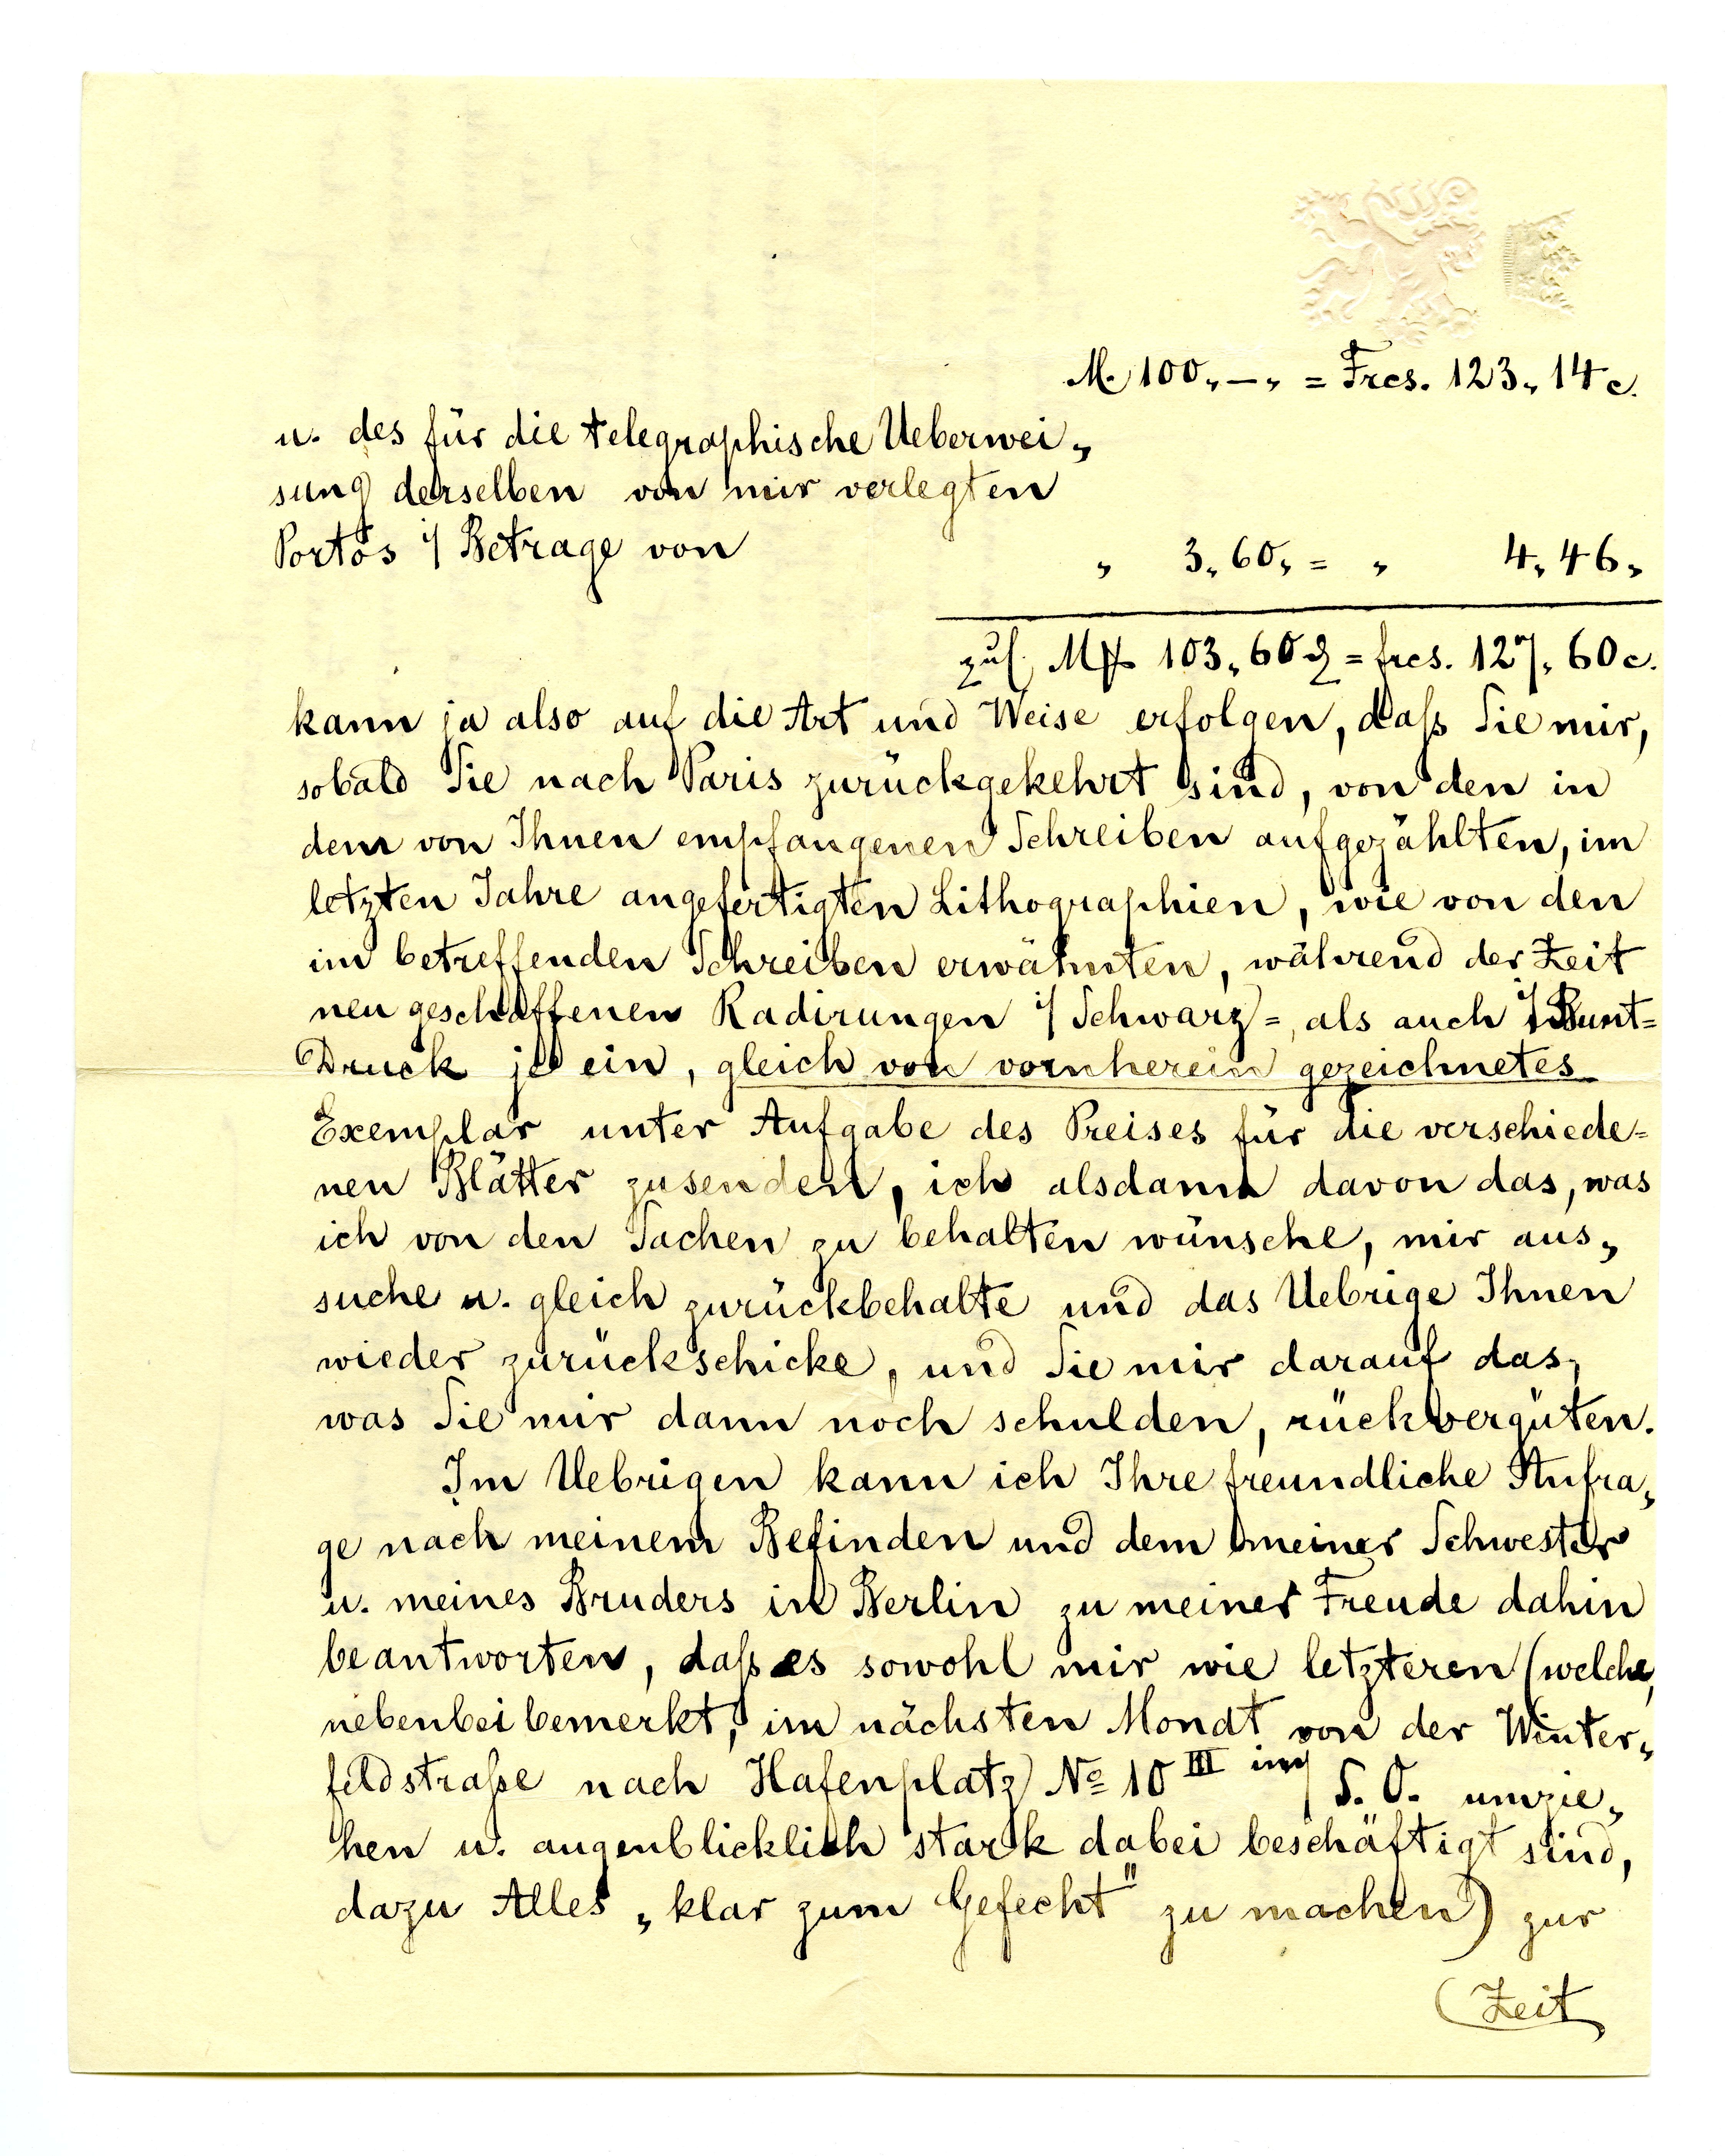 M. 100,—, = Frcs. 123, 14 c.
u. des für die telegraphische Ueberwei„
sung derselben von mir verlegten
Portos i/ Betrage von „ 3, 60, = „ 4, 46,
zus. Mk 103, 60 ₰ = frcs. 127, 60 c.
kann ja also auf die Art und Weise erfolgen, daß Sie mir,
sobald Sie nach Paris zurückgekehrt sind, von den in
dem von Ihnen empfangenen Schreiben aufgezählten, im
letzten Jahre angefertigten Lithographien, wie von den
im betreffenden Schreiben erwähnten, während der Zeit
neu geschaffenen Radirungen i/ Schwarz=, als auch i/ Bunt=
Druck je ein, gleich von vornherein gezeichnetes
Exemplar unter Aufgabe des Preises für die verschiede=
nen Blätter zusenden, ich alsdann davon das, was
ich von den Sachen zu behalten wünsche, mir aus„
suche u. gleich zurückbehalte und das Uebrige Ihnen
wieder zurückschicke, und Sie mir darauf das,
was Sie mir dann noch schulden, rückvergüten.
Im Uebrigen kann ich Ihre freundliche Anfra„
ge nach meinem Befinden und dem meiner Schwester
u. meines Bruders in Berlin zu meiner Freude dahin
beantworten, daß es sowohl mir wie letzteren (welche,
nebenbei bemerkt, im nächsten Monat von der Winter„
feldstraße nach Hafenplatz No 10 III S. O. umzie„
hen u. augenblicklich stark dabei beschäftigt sind,
dazu Alles „klar zum Gefecht" zu machen) zur
(Zeit